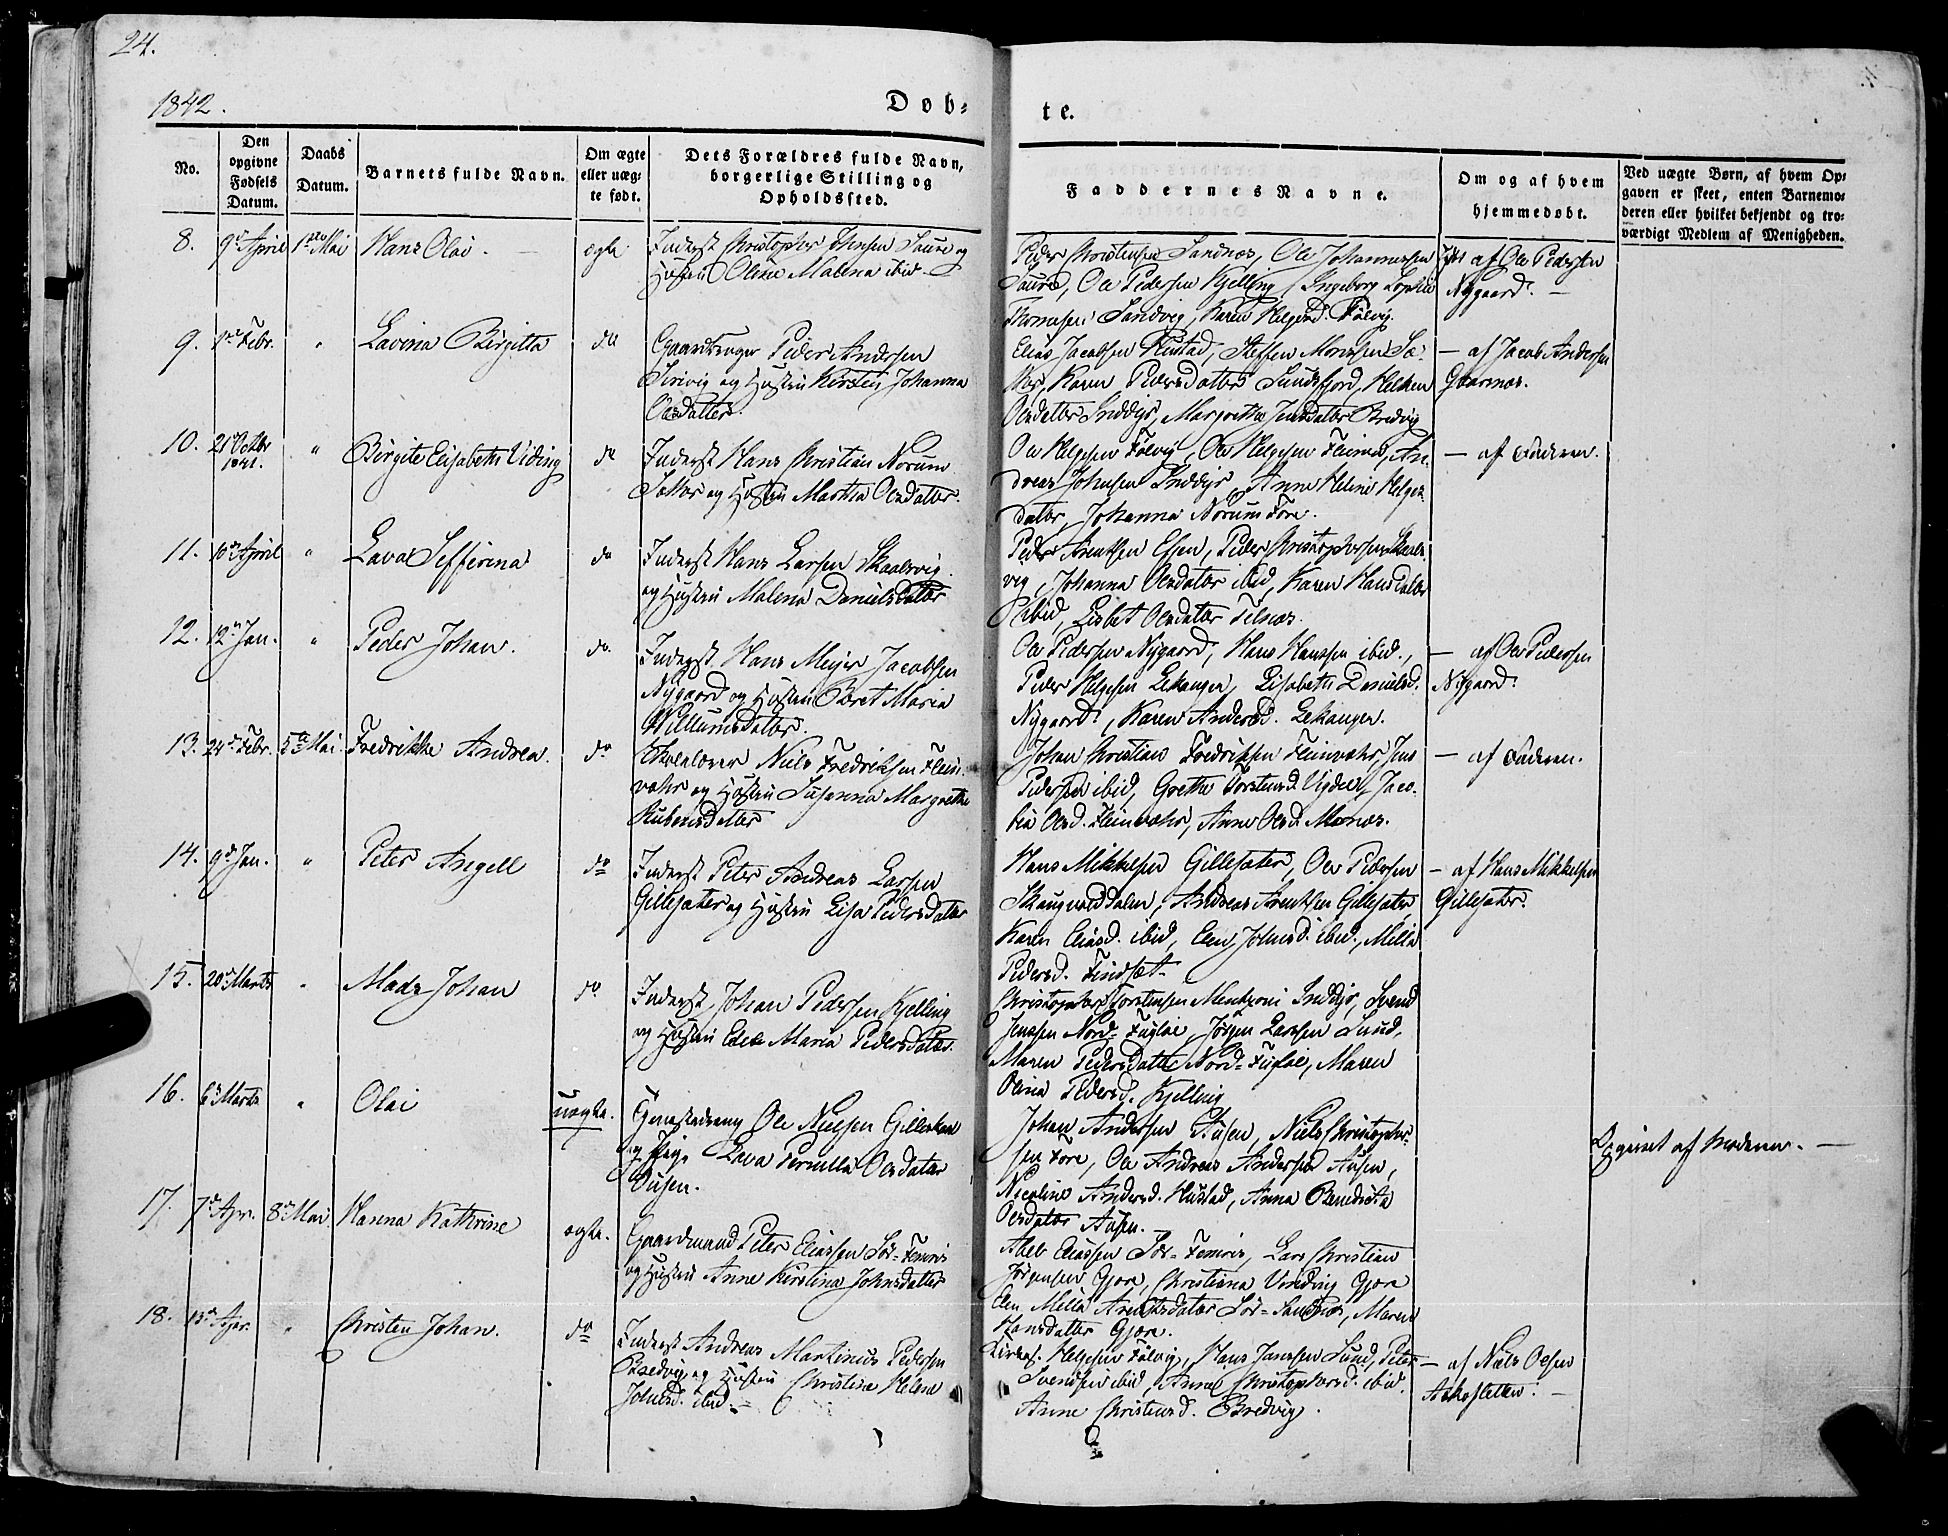 24.
1842.
Døb=
te.
No.
Den opgivne Fødsels Datum.
Daabs Datum.
Barnets fulde Navn.
Om ægte eller uæg= te født.
Dets Forældres fulde Navn, borgerlige Stilling og Opholdssted.
Faddernes Navne.
Om og af hvem hjemmedøbt.
Ved uægte Børn, af hvem Op= gaven er skeet, enten Barnemo= deren eller hvilket bekjendt og tro= værdigt Medlem af Menigheden.
8. 9de April 1ste Mai Hans Olai. ægte
Inderst Christopher Johnsen Saura og
Hustru Oline Malena ibid.
Peder Christensen Sandnæs, Ole Johannessen
Saura, Ole Pedersen Kjelling, Ingeborg Sophie
Thomes. Sandvig, Karen Helgesd. Følvig.
af Ole Pedersen
Nygaard.
9. 1ste Febr. " Lavina Birgitta do
Gaardbruger Peder Andersen
og Hustru Kirsten Johanna
Olesdatter.
Elias Jacobsen Hustad, Steffen Monssen Sæ=
Karen Pedersdatter Sundsfjord, Helken
Olesdatter Inddyr, Margrethe Jensdatter Bredvig
— af Jacob Andersen
10. 21de Octbr 1841. " Birgite Elisabeth Viding do
Inderst Hans Christian Norum
og Hustru Martha Olesdatter.
Ole Helgesen Følvig, Ole Helgesen Fleines, An=
dreas Johnsen Inddyr, Anne Helene Helges=
datter, Johanna Norum Fore.
— af Faderen.
11. 10de April " Lava Seffirina do
Inderst Hans Larsen Skaalsvig
og Hustru Malena Danielsdatter
Peder Arentsen Esen, Peder Christophersen Skaals=
vig, Johanna Olesdatter ibid, Karen Hansdatter
ibid, Lisbet Olesdatter Telnæs.
12. 12te Jan. " Peder Johan. do
Inderst Hans Meyer Jacobsen
Nygaard og Hustru Beret Maria
Willumsdatter.
Ole Pedersen Nygaard, Hans Hanssen ibid.,
Peder Helgesen Lekanger, Lisabeth Danielsd.
Nygaard, Karen Andersd. Lekanger.
— af Ole Pedersen
Nygaard.
13. 24de Febr. 5te Mai Fredrikke Andrea. do
Skolelærer Niels Fredriksen Flein=
vær og Hustru Susanna Margrethe
Rubensdatter
Johan Christian Fredriksen Fleinvær, Jens
Pedersen ibid, Grethe Torstensd. Vigdel, Jaco=
bia Olesd. Fleinvær, Anne Olesd. Monæs.
— af Faderen.
14. 9de Jan. " Peter Angell do
Inderst Peter Andreas Larsen
Gillesæter og Hustru Lisa Pedersdatter
Hans Mikkelsen Gillesæter, Ole Pedersen
Andreas Arentsen Gillesæter,
Karen Eliasd. ibid, Elen Johnsd. ibid., Melia
Pedersd. Findsæt.
— af Hans Mikkelsen
Gillesæter.
15. 20de Marts " Mads Johan do
Inderst Johan Pedersen Kjelling
og Hustru Edel Maria Pedersdatter.
Christopher Torstensen Mentzoni Inddyr, Svend
Jenssen Nord=Fugløe, Jørgen Larssen Sund,
Maren Pedersdatter Nord=Fugløe, Maren
Olina Pedersd. Kjelling
16. 6te Marts " Olai uægte.
Tjenestedreng Ole Nielsen Gilleskaal
og Pige Lava Pernilla Olesdatter
Ausen.
Johan Andersen Ausen, Niels Christopher=
sen Fore, Ole Andreas Andersen Ausen,
Nicoline Andersd. Hustad, Anna Bendicta
Olesdatter Ausen.
Opgivet af Moderen. —
17. 7de Apr. 8de Mai Hanna Kathrine ægte.
Gaardmand Peter Eliassen Sør=Femris
og Hustru Anne Kirstina Johnsdatter
Abel Eliassen Sør=Femris, Lars Christian
Jørgensen Gjøre, Christiana Vinding Gjøre
Elen Melia Arentsdatter Sør=Sandnæs, Maren
Hansdatter Gjøre.
18. 15de Apr. " Christen Johan. do
Inderst Andreas Martinus Pedersen
Bredvig og Hustru Christina Helene
Johnsd. ibid. —
Helgesen Følvig, Hans Janssen Sund, Peter
Svendsen ibid, Anne Christophersd. ibid.
Anne Christensd. Bredvig.
— af Niels Olsen